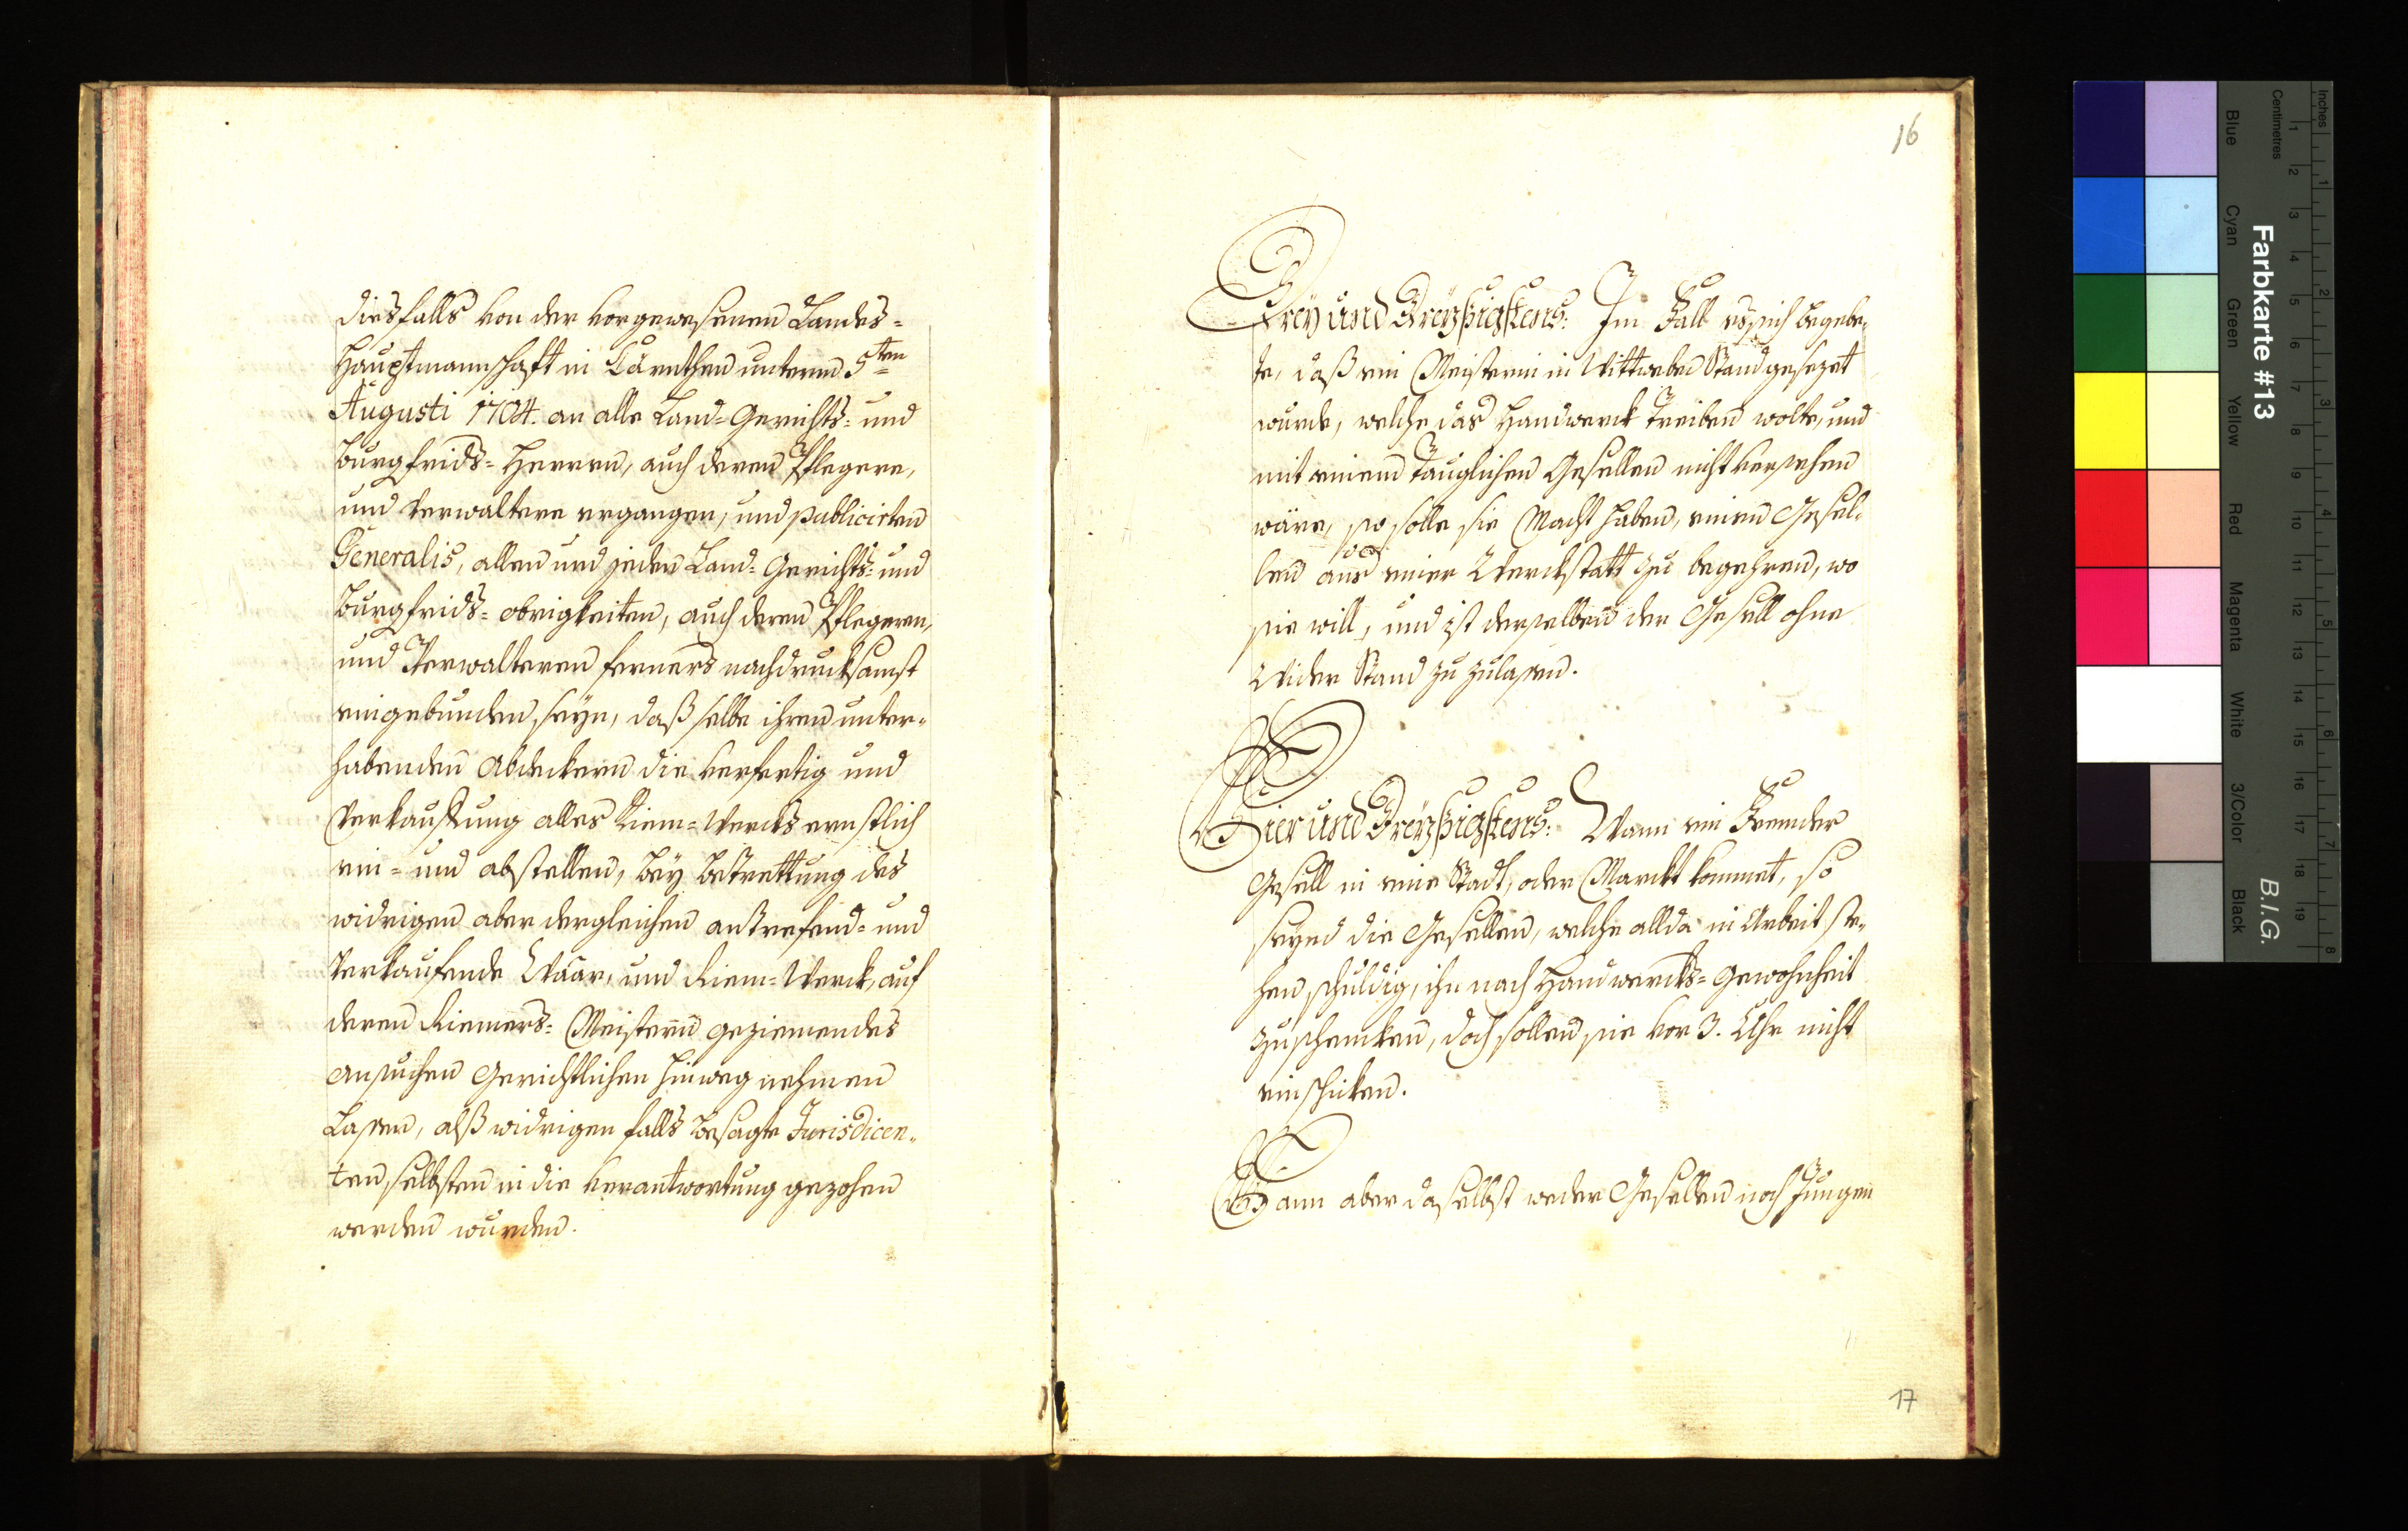 diesfalls von der vorgewesenen Landes=
Hauptmannschaft in Kärnthen unterm 5ten
Augusti 1704. an alle Land=Gerichts= und
Burgfrids=Herren, auch deren Pflegere,
und Verwaltere ergangen, und publicirten
Generalis, allen und jeden Land=Gerichts= und
Burgfrids=obrigkeiten, auch deren Pflegeren,
und Verwalteren ferners nachdrucksamst
eingebunden seye, daß selbe ihren unter=
habenden Abdeckern die verfertig und
Verkauffung alles Riem=Wercks ernstlich
ein= und abstellen, bey bettrettung des
widrigen aber dergleichen antrefend= und
Verkaufende Waar, und Riem=Werck, auf
deren Riemers=Meistern geziemendes
ansuchen Gerichtlichen hinweg nehmen
Lassen, alß widrigen falls besagte Jurisdicen=
ten selbsten in die Verantwortung gezohen
werden wurden.
16
Drey und Dreyßigstens: Im Fall es sich begebe=
te, daß ein Meisterin in Wittweben Stand gesezet
wurde, welche das Handwerck treiben wolte, und
mit einem tauglichen Gesellen nicht versehen
wäre, so solle sie Macht haben, einen Gesel=
len aus einer Werckstatt zu begehren, wo
sie will, und ist derselben der Gesell ohne
Wider Stand zu zulassen.
Vier und Dreyßigstens: Wann ein Fremder
Gesell in eine Stadt, oder Marckt kommet, so
seynd die Gesellen, welche allda in Arbeit ste=
hen schuldig, ihn nach Handwercks=Gewohnheit
zuschencken, doch sollen sie vor 3. Uhr nicht
einschicken.
Wann aber daselbst weder Gesellen noch Jungen
17
Farbkarte #13
B.I.G.
Inches
Centimetres
Blue
Cyan
Green
Yellow
Red
Magenta
White
3/Color
Black